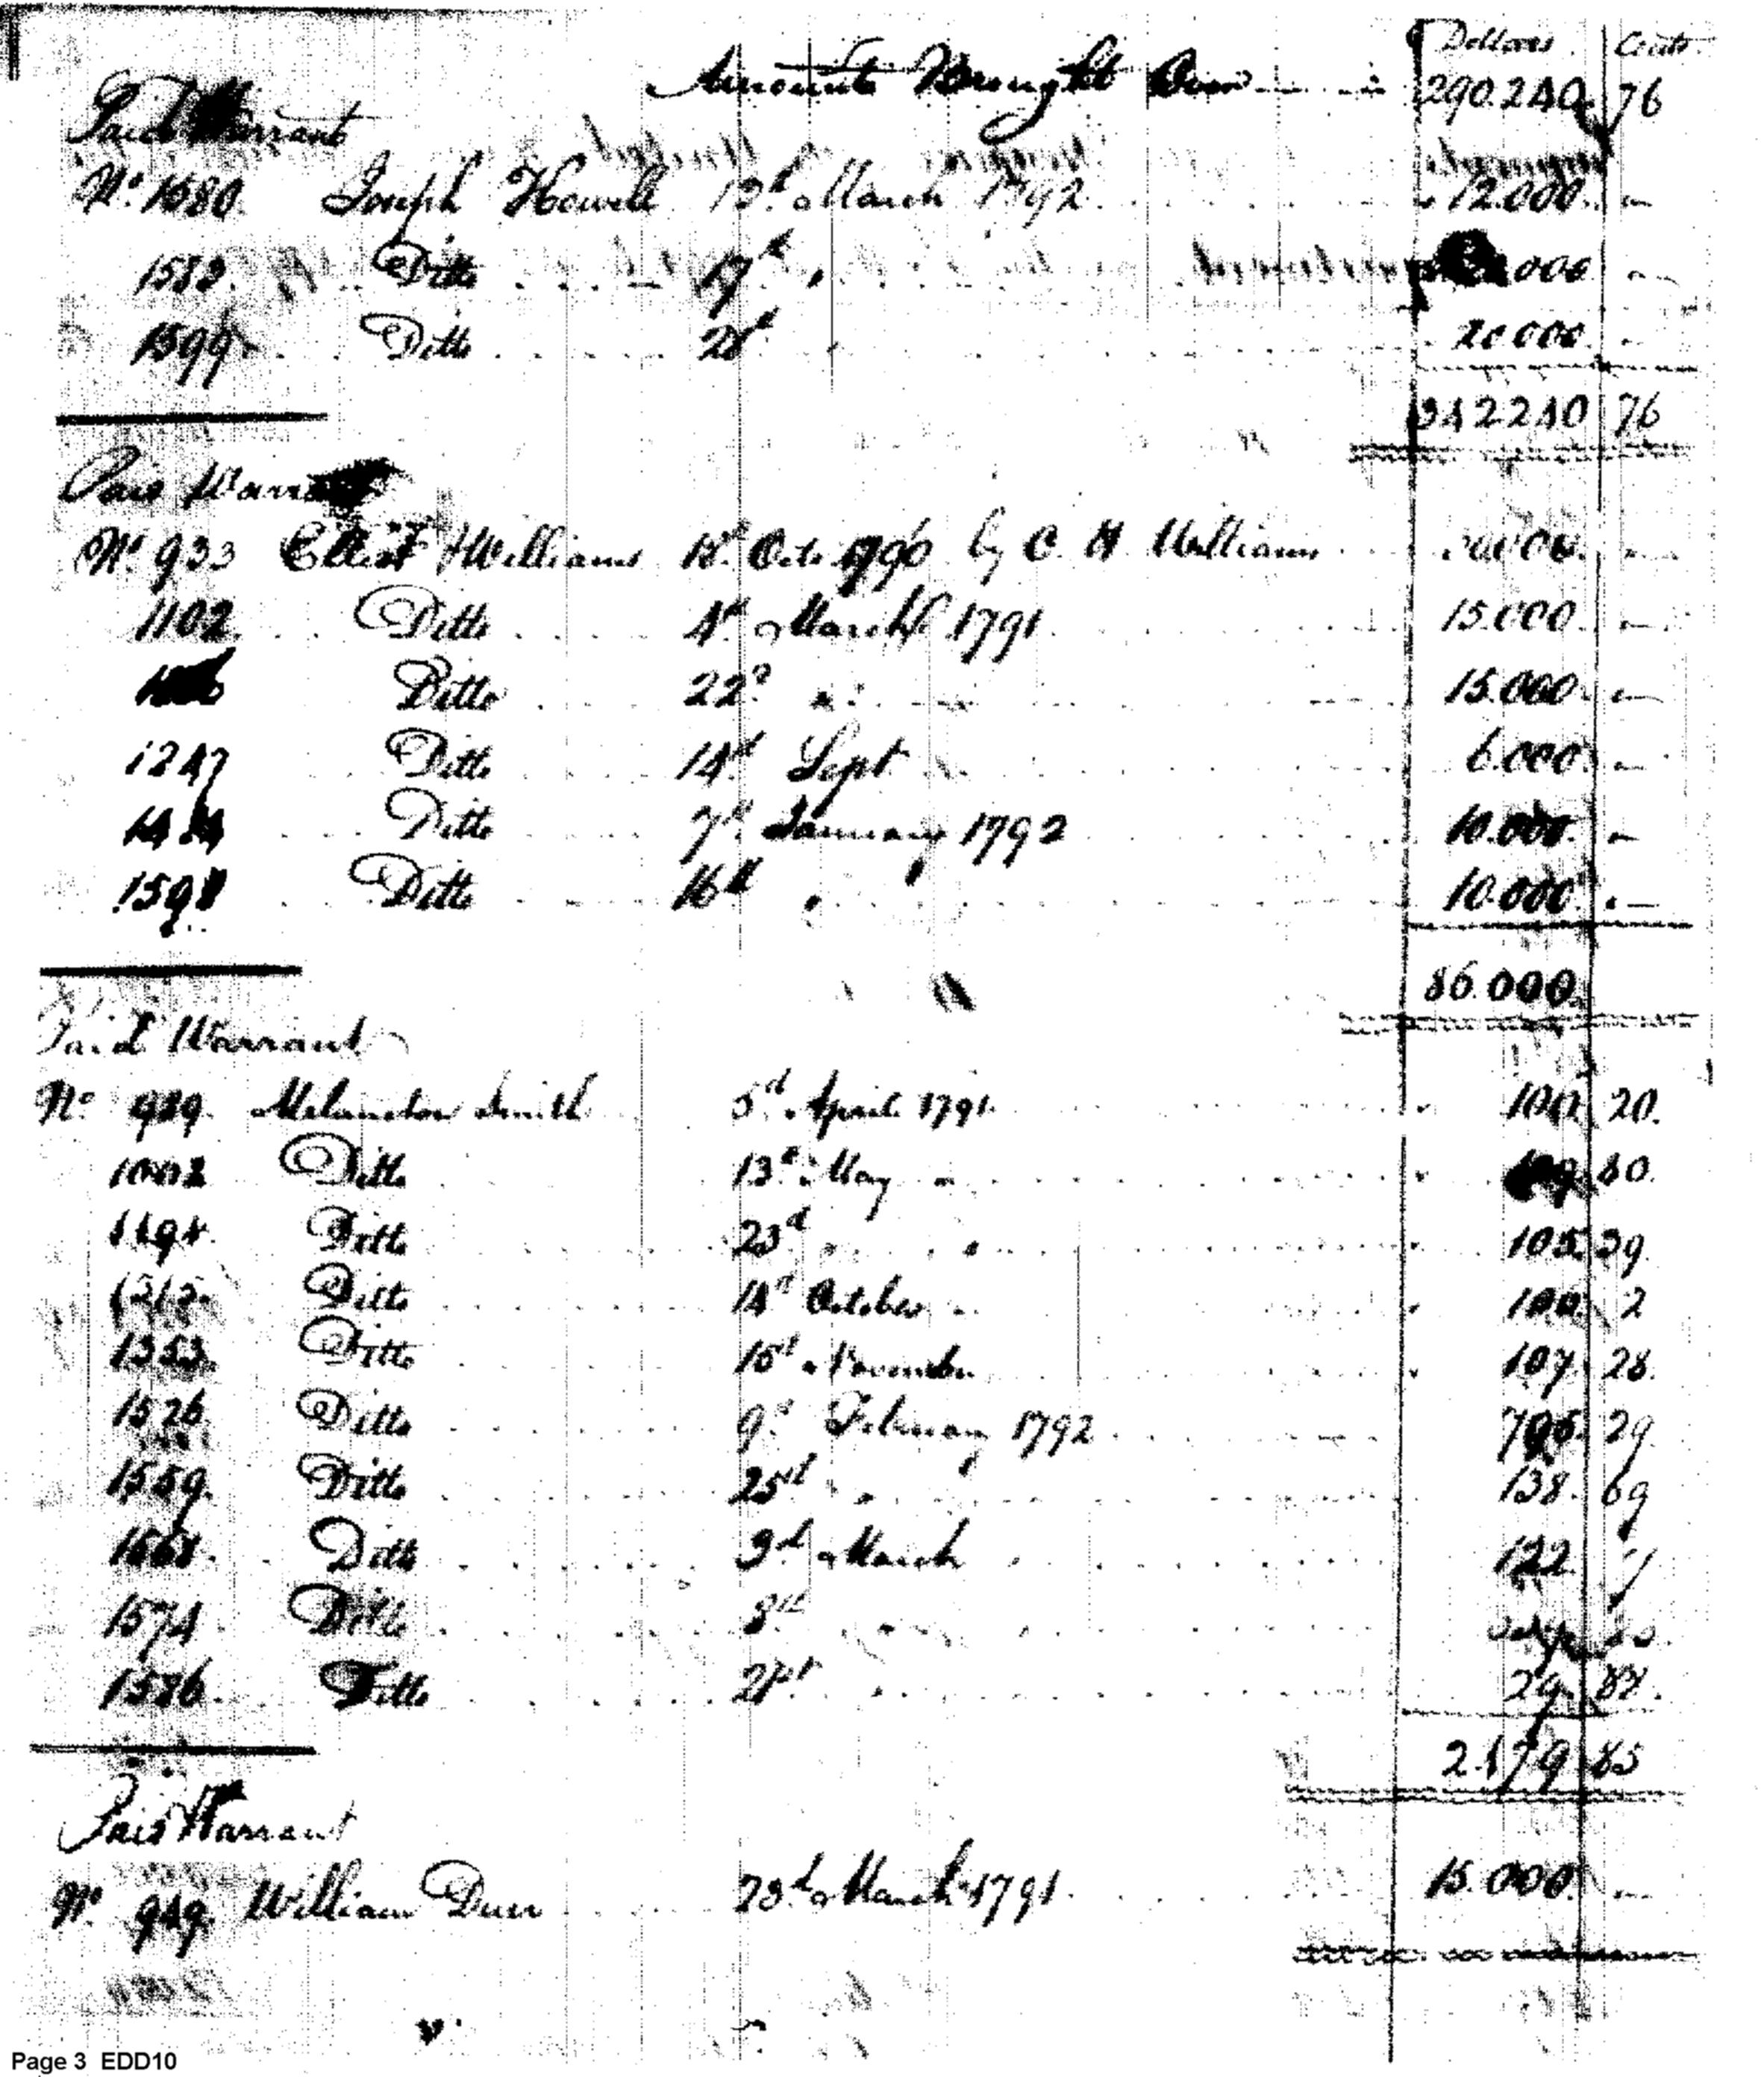 Dollars Cents
Amounts Brought Over 290.240. 76
Paid Warrant
No. 1580. Joseph Howell 13d. March 1792 12.000. —
Ditto 17th " 000 —
1599 Ditto 28d. " 20.000. —
342240 76
Paid Warrant
No 933 Elliot & Williams Octr. 1790 by C H Williams —
1102. Ditto 4th March 1791 15.000. —
Ditto 22d " 15.000. —
1247 Ditto 14th Sept. 6.000. —
Ditto 7th January 1792 10.000. —
Ditto 16th " 10.000. —
86.000.
Paid Warrant
No Melancton Smith 5th. April 1791. 20.
Ditto 13th. May 40.
Ditto 23d " " 105. 39.
Ditto 14th October 100. 2
1353. Ditto 15th November 107. 28.
1526. Ditto 9th February 1792 29.
1559. Ditto 25th " 138. 69
Ditto 3d March 122.
1574 Ditto 8th
1586. Ditto 21st 29. 88.
2.179 85
Paid Warrant
No. William Duer 23d March 1791. 15.000. —
Page 3 EDD10